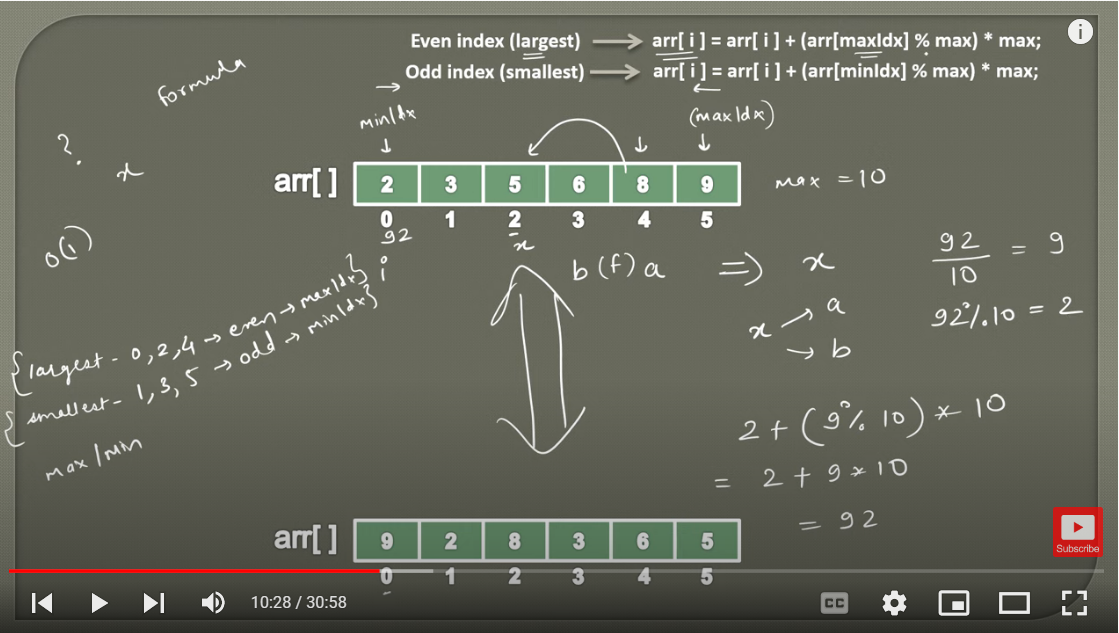 Even index (largest) → arr[ i ] = arr[ i ] + (arr[maxIdx] % max) * max;
Odd index (smallest) → arr[ i ] = arr[ i ] + (arr[minIdx] % max) * max;
formula
minIdx
(maxIdx)
?
x
arr[ ] 2 3 5 6 8 9
max = 10
0 1 2 3 4 5
92
x
i
O(1)
b (f) a => x
92/10 = 9
x → a
→ b
92%10 = 2
{largest - 0, 2, 4 → even → maxIdx}
{smallest - 1, 3, 5 → odd → minIdx}
max/min
2 + (9% 10) * 10
= 2 + 9 * 10
= 92
arr[ ] 9 2 8 3 6 5
0 1 2 3 4 5
Subscribe
10:28 / 30:58
CC
i